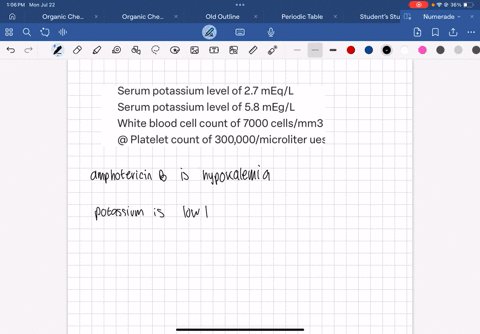 1:06 PM Mon Jul 22
36%
Organic Che... Organic Che... Old Outline Periodic Table Student's Stu Numerade
Serum potassium level of 2.7 mEq/L
Serum potassium level of 5.8 mEg/L
White blood cell count of 7000 cells/mm3
@ Platelet count of 300,000/microliter ues
amphotericin B is hypokalemia
potassium is low l